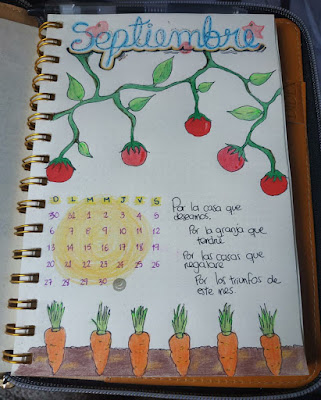 Septiembre
D L M M J V S
30 31 1 2 3 4 5
6 7 8 9 10 11 12
13 14 15 16 17 18 19
20 21 22 23 24 25 26
27 28 29 30
Por la casa que
deseamos,
Por la granja que
tendré
Por las cosas que
regalaré
Por los triunfos de
este mes